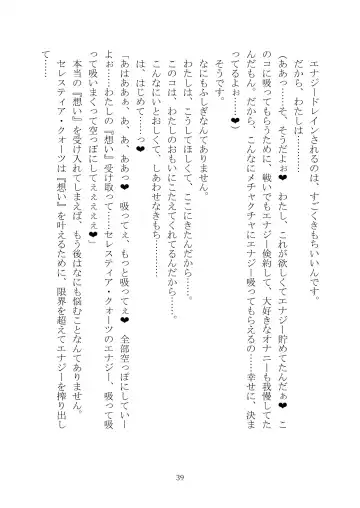 エナジードレインされるのは、すごくきもちいいんです。
だから、わたしは――
(ああっ……そ、そうだよぉ♥ わたし、これが欲しくてエナジー貯めてたんだぁ♥ こ
のコに吸ってもらうために、戦いでもエナジー倹約して、大好きなオナニーも我慢してた
んだもん。だから、こんなにメチャクチャにエナジー吸ってもらえるの……幸せに、決ま
ってるよぉ……♥)
そうです。
なにもふしぎなんてありません。
わたしは、こうしてほしくて、ここにきたんだから――
このコは、わたしのおもいにこたえてくれてるんだから――
こんなにいとおしくて、しあわせなきもち……
は、はじめて……っ♥
「あはああぁ、あ、あ、ああっ♥ 吸ってぇ、もっと吸ってぇ♥ 全部空っぽにしていー
からぁ、ぁはぉ……わたしの『想い』受け取って……セレスティア・クォーツのエナジー、吸って吸
って吸いまくって空っぽにしてぇぇぇぇ♥」
本当の『想い』を受け入れてしまえば、もう後はなにも悩むことなんてありません。
セレスティア・クォーツは『想い』を叶えるために、限界を超えてエナジーを搾り出し
て……
39